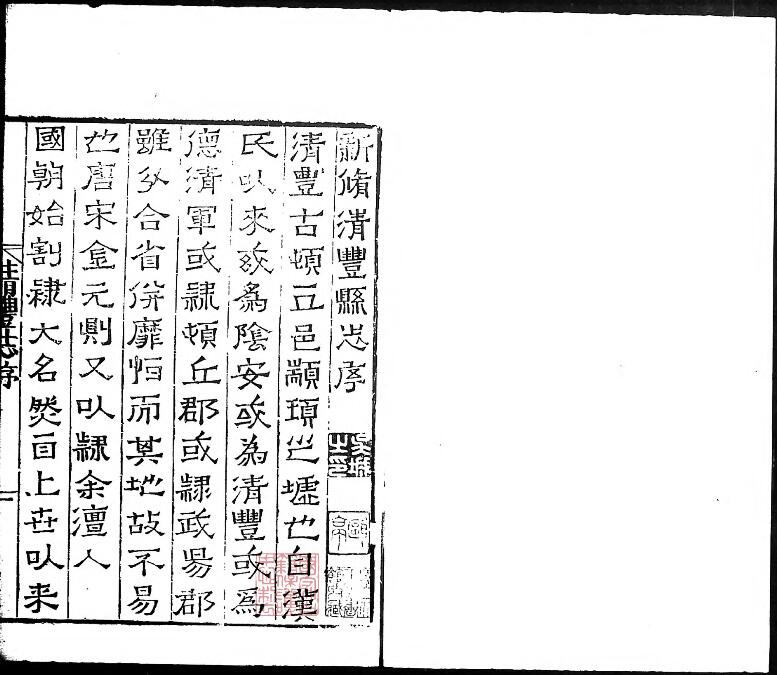 新脩清豐縣志序
清豐古頓丘邑顓頊之墟也自漢
氏以來或為陰安或為清豐或為
德清軍或隸頓丘郡或隸武陽郡
雖分合省併靡恒而其地故不易
也唐宋金元則又以隸余澶人
國朝始割隸大名然自上世以來